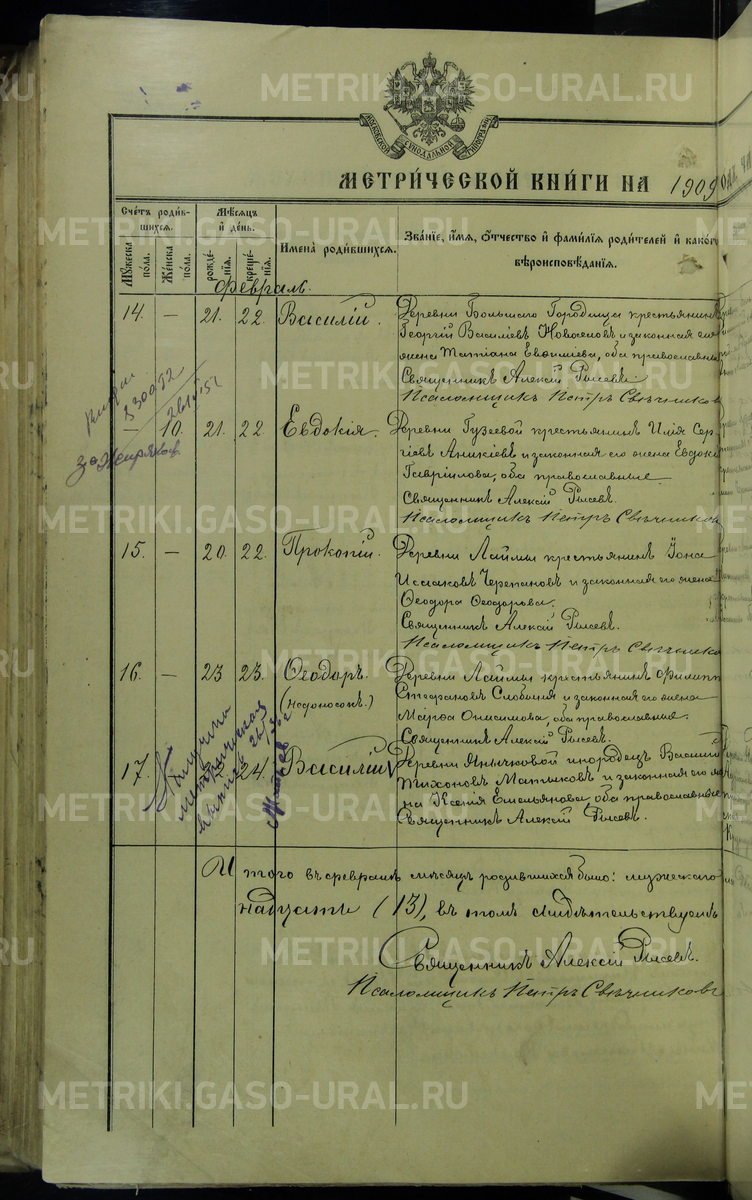 МЕТРИ́ЧЕСКОЙ КНИ́ГИ НА 1909
Счетъ роди́в-
шихся.
Мѣсяцъ
и҆ день.
Мꙋжеска
пола.
Же́нска
пола.
рожде-
нїя.
креще-
нїя.
И҆мена̀ роди́вшихся.
Зва́нїе, и҆́мя, ѻ҆́тчество и҆ фами́лїя роди́телей и҆ како́гѡ
вѣроисповѣ́данїя.
Февраль.
14. — 21. 22. Василій.
Деревни Большаго Городища крестьянинъ
Георгій Василіевъ Новоселовъ и законная его
жена Татіана Евѳиміева, оба православные
Священникъ Алексій Рысевъ.
Псаломщикъ Петръ Свѣчниковъ
— 10. 21. 22. Евдокія.
Деревни Гузеевой крестьянинъ Илія Сер-
гіевъ Аникіевъ и законная его жена Евдокія
Гавріилова, оба православные
Священникъ Алексій Рысевъ.
Псаломщикъ Петръ Свѣчниковъ
15. — 20. 22. Прокопій.
Деревни Лаймы крестьянинъ Іона
Исааковъ Черепановъ и законная его жена
Ѳеодора Ѳеодорова.
Священникъ Алексій Рысевъ.
Псаломщикъ Петръ Свѣчниковъ
16. — 23 23. Ѳеодоръ.
(недоносокъ.)
Деревни Лаймы крестьянинъ Филиппъ
Стефановъ Слобцинъ и законная его жена
Марѳа Онисимова, оба православные.
Священникъ Алексій Рысевъ.
17. 24. Василій
Деревни инородецъ Василій
Тихоновъ и законная его же-
на Ксенія Емельянова, оба православные
Священникъ Алексій Рысевъ.
Итого въ февралѣ мѣсяцѣ родившихся было: мужескаго
надцать (13), въ томъ свидѣтельствуемъ
Священникъ Алексій Рысевъ.
Псаломщикъ Петръ Свѣчниковъ
METRIKI.GASO-URAL.RU